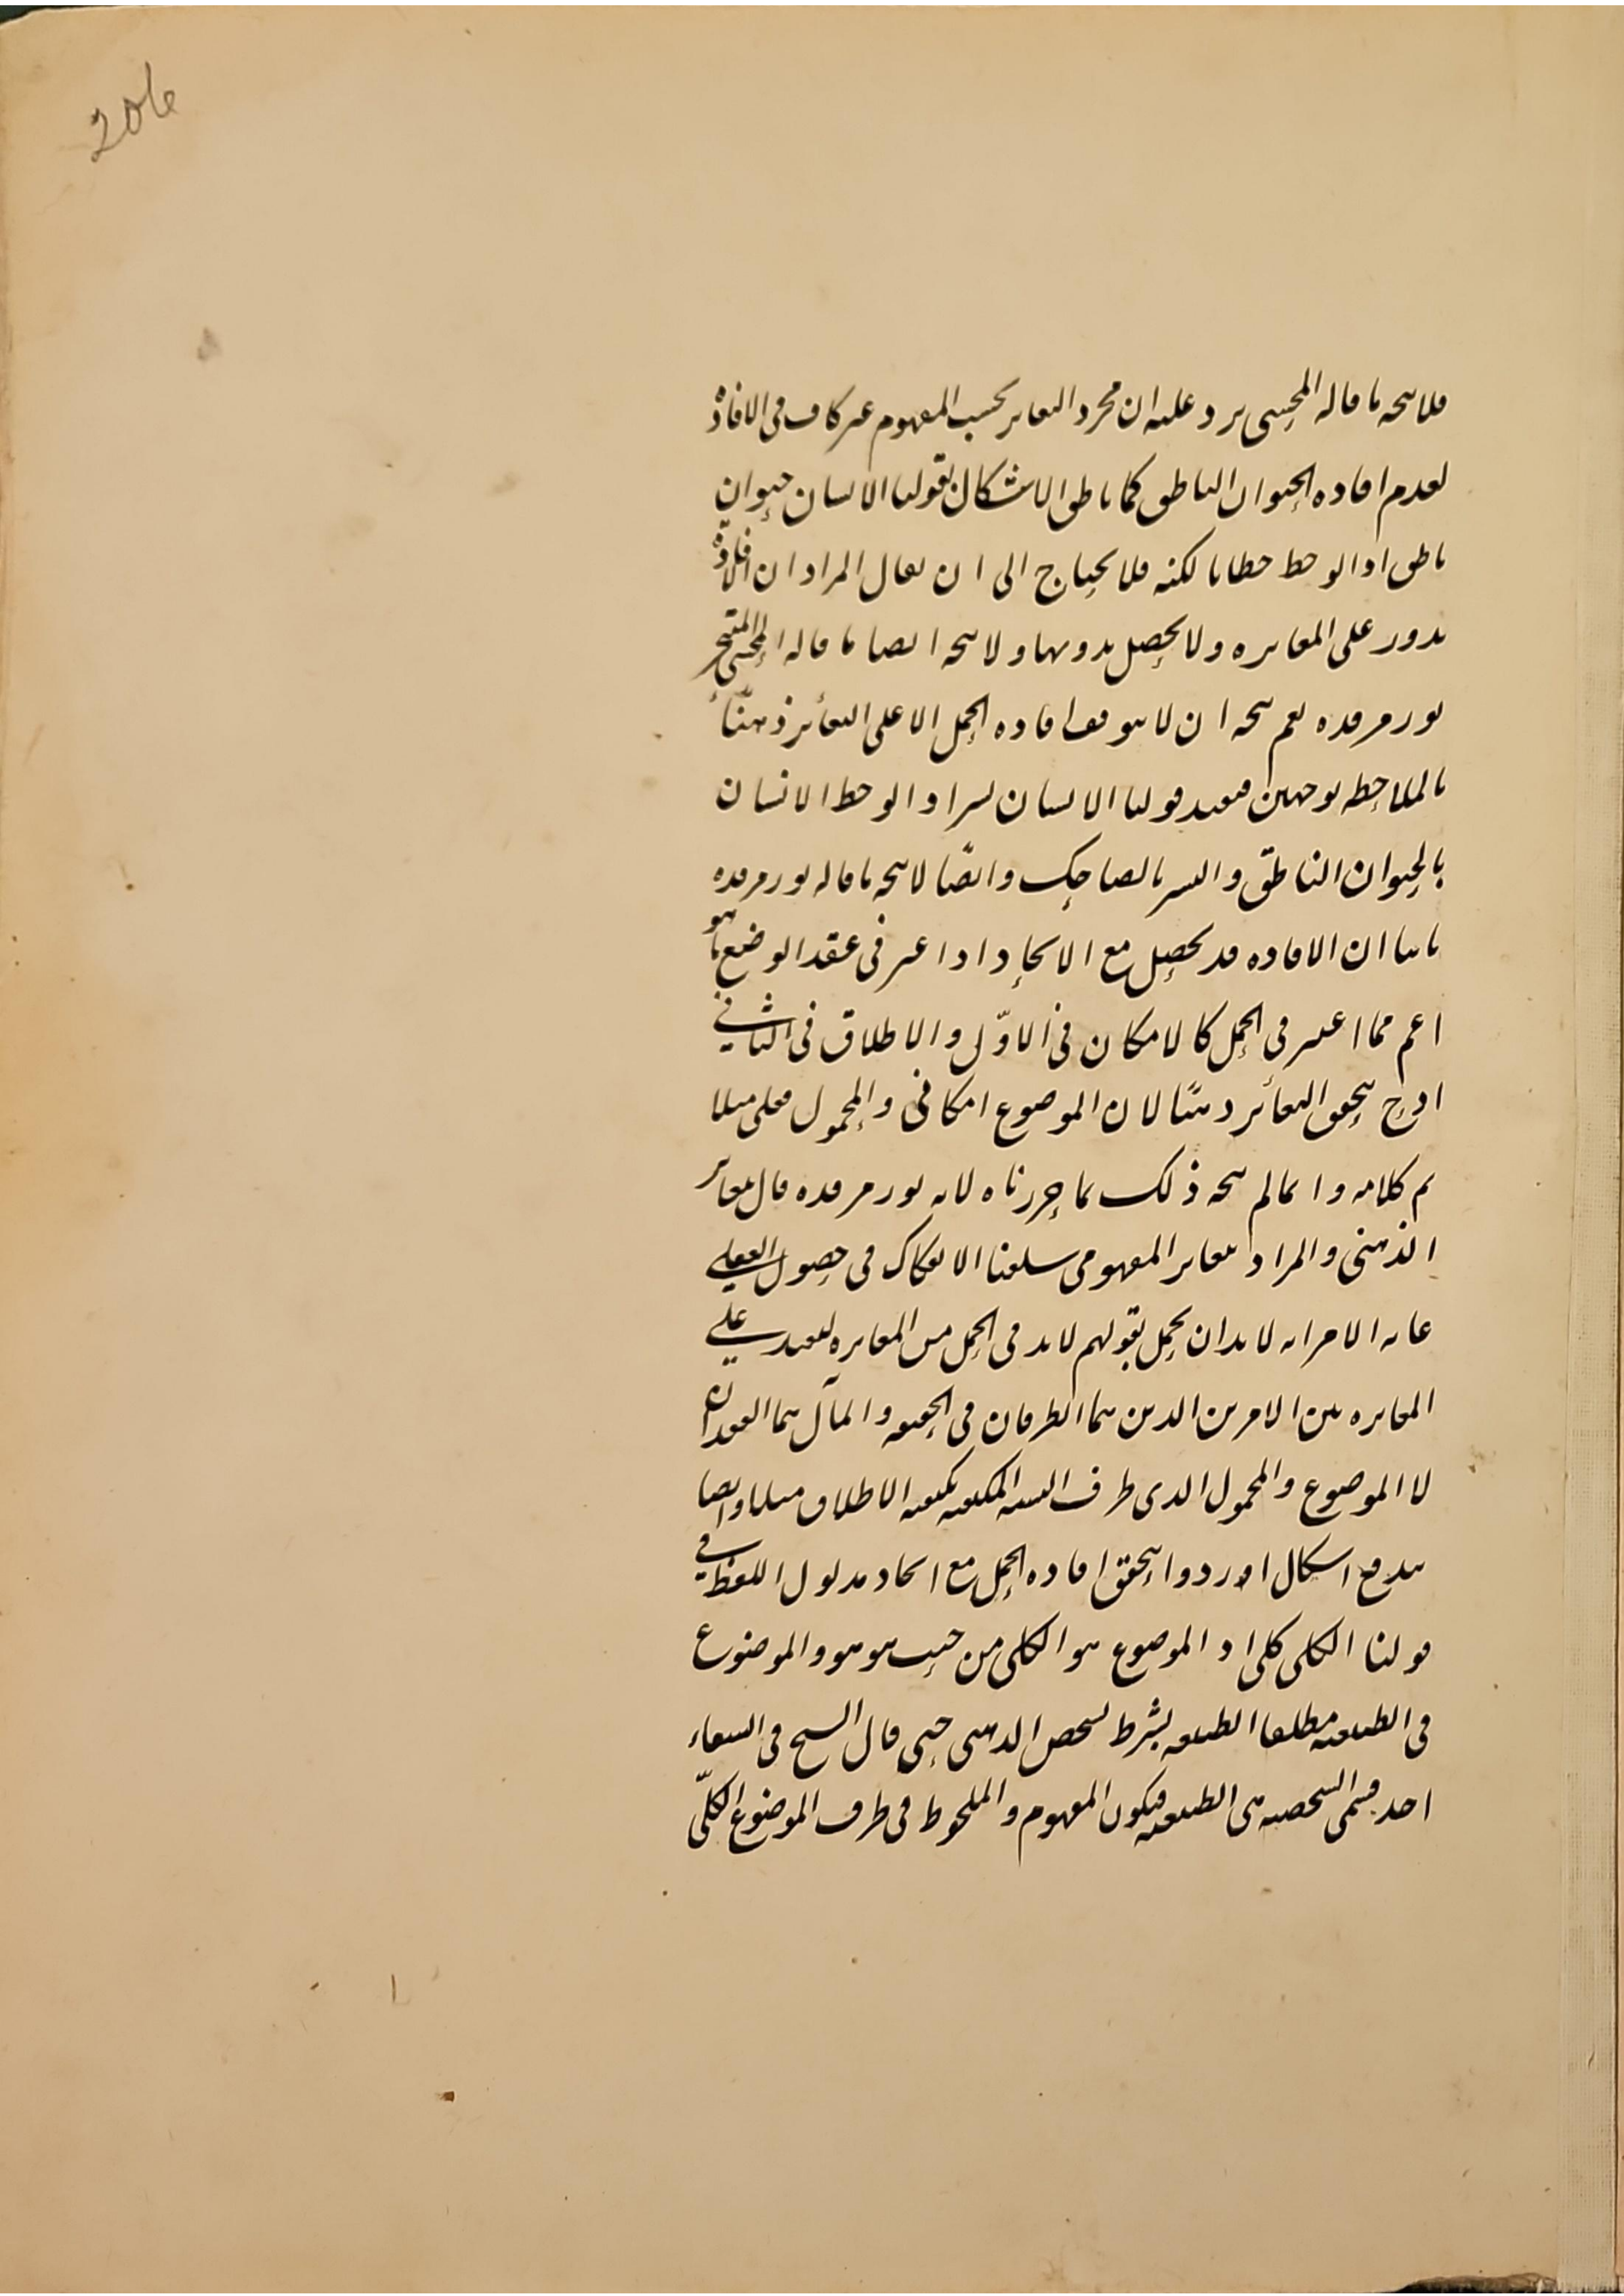 206
فلا یتجه ما قاله المحشی یرد علیه ان مجرد التغایر بحسب المفهوم غیر کاف فی الافادة
لعدم افاده الحیوان الناطق کما ناطق الاشکال بقولنا الانسان حیوان
ناطق اذا لوحظ حطانا لکنه فلا یحتاج الی ان یقال المراد ان الافادة
یدور علی المغایره ولا یحصل بدونها ولا یتجه ایضا ما قاله المحشی المتبحر
نور مرقده نعم یتجه ان لا یتوقف افاده الحمل الا علی التغائر ذهنًا
بالملاحظه بوجهین فیفید قولنا الانسان بشر اذا لوحظ الانسان
بالحیوان الناطق والبشر بالضاحک وایضًا لا یتجه ما قاله نور مرقده
ثانیا ان الافاده قد یحصل مع الاتحاد اذا اعتبر فی عقد الوضع ما هو
اعم مما اعتبر فی الحمل کالامکان فی الاوّل والاطلاق فی الثانی
اذ ح یتحقق التغائر ذهنًا لان الموضوع امکانی والمحمول فعلی مثلا
تم کلامه وانما لم یتجه ذلک بما حررناه لانه نور مرقده قال بتغایر
الذهنی والمراد بتغایر المفهومی سلمنا الانفکاک فی حصول العقلی
غایه الامر انه لا بد ان یحمل بقولهم لا بد فی الحمل من المغایره لیفید علی
المغایره بین الامرین الذین هما الطرفان فی الحقیقه والمآل هما العقدان
لا الموضوع والمحمول الذی طرف النسبه المکیفه بکیفیه الاطلاق مثلا وایضا
یندفع اشکال اوردوا بتحقق افاده الحمل مع اتحاد مدلول اللفظ فی
قولنا الکلی کلی اذ الموضوع هو الکلی من حیث هو هو والموضوع
فی الطبیعیه مطلقا الطبیعه بشرط تشخص الذهنی حتی قال الشیخ فی الشفاء
احد قسمی الشخصیه هی الطبیعیه فیکون المفهوم والملحوظ فی طرف الموضوع الکلّی